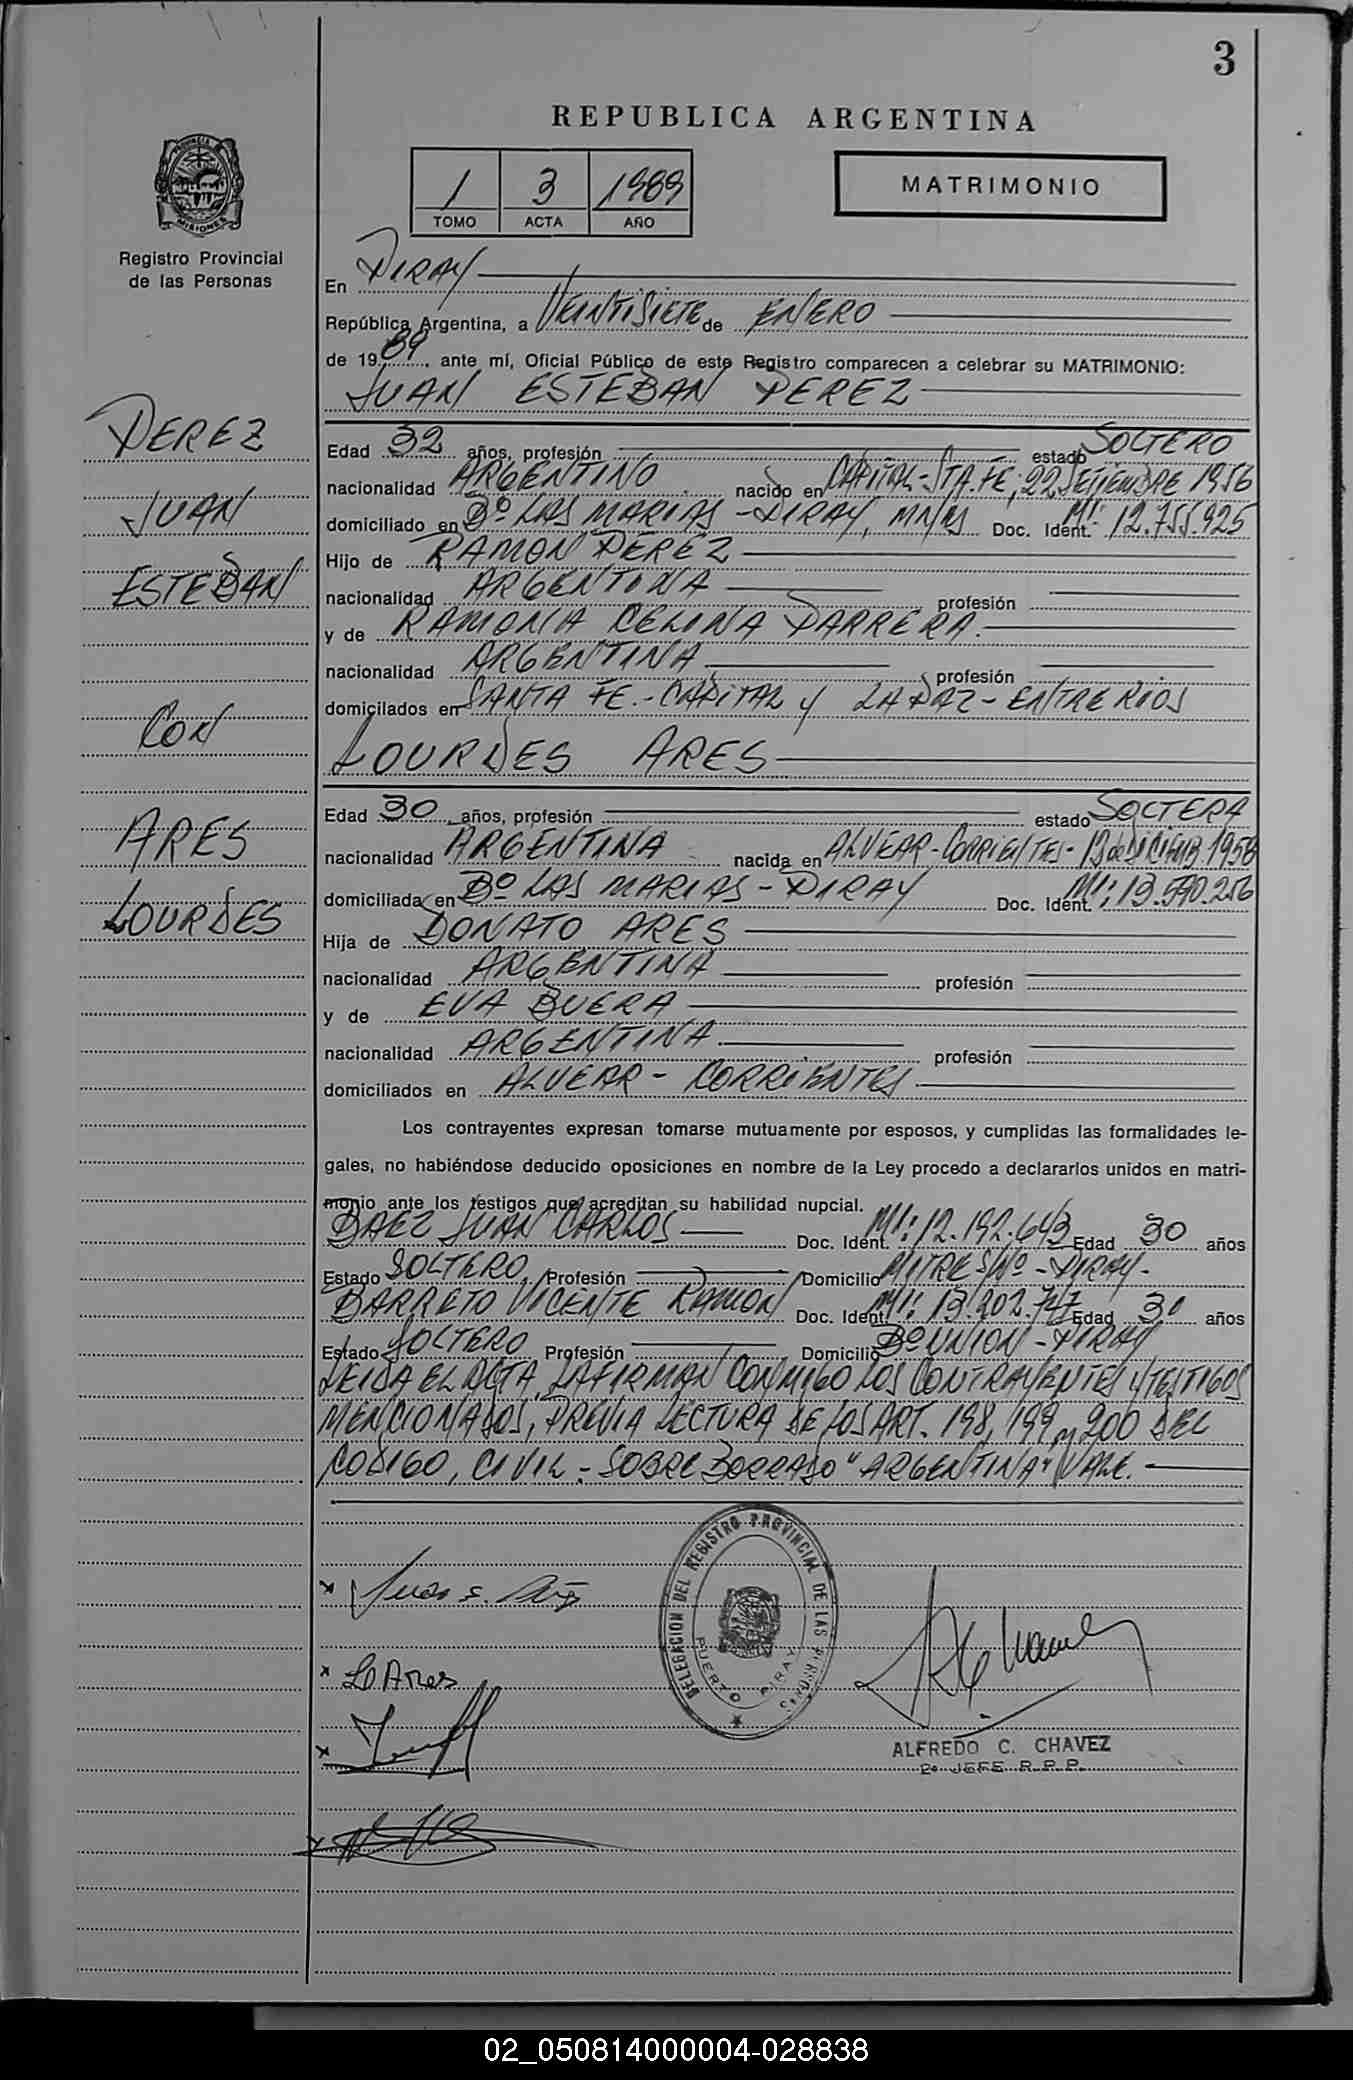 3
REPUBLICA ARGENTINA
PROVINCIA DE
MISIONES
Registro Provincial
de las Personas
1 3 1989
TOMO ACTA AÑO
MATRIMONIO
En PIRAY
República Argentina, a VEINTISIETE de ENERO
de 1989, ante mí, Oficial Público de este Registro comparecen a celebrar su MATRIMONIO:
JUAN ESTEBAN PEREZ
Edad 32 años, profesión estado SOLTERO
nacionalidad ARGENTINO nacido en CAPITAL-STA. FE, 22 SETIEMBRE 1956
domiciliado en Bº LAS MARIAS - PIRAY, MNES Doc. Ident. MI: 12.755.925
Hijo de RAMON PEREZ
nacionalidad ARGENTINA profesión
y de RAMONA CELINA PARRERA.
nacionalidad ARGENTINA profesión
domicilados en SANTA FE.-CAPITAL y LA PAZ - ENTRE RIOS
LOURDES ARES
Edad 30 años, profesión estado SOLTERA
nacionalidad ARGENTINA nacida en ALVEAR-CORRIENTES- 13 de DICIEMB. 1958
domiciliada en Bº LAS MARIAS - PIRAY Doc. Ident. MI: 13.590.256
Hija de DONATO ARES
nacionalidad ARGENTINA profesión
y de EVA BUERA
nacionalidad ARGENTINA profesión
domiciliados en ALVEAR - CORRIENTES
Los contrayentes expresan tomarse mutuamente por esposos, y cumplidas las formalidades le-
gales, no habiéndose deducido oposiciones en nombre de la Ley procedo a declararlos unidos en matri-
monio ante los testigos que acreditan su habilidad nupcial.
BAEZ JUAN CARLOS Doc. Ident. MI: 12.192.643 Edad 30 años
Estado SOLTERO. Profesión Domicilio MITRE S/Nº - PIRAY.
BARRETO VICENTE RAMON Doc. Ident. MI: 13.202.747 Edad 30 años
Estado SOLTERO Profesión Domicilio Bº UNION - PIRAY
LEIDA EL ACTA, LA FIRMAN CONMIGO LOS CONTRAYENTES y TESTIGOS
MENCIONADOS, PREVIA LECTURA DE LOS ART. 198, 199, y 200 DEL
CODIGO, CIVIL.- SOBRE BORRADO "ARGENTINA" VALE.
PEREZ
JUAN
ESTEBAN
CON
ARES
LOURDES
DELEGACION DEL REGISTRO PROVINCIAL DE LAS PERSONAS
PUERTO PIRAY
x Juan E.
x L Ares
x
ALFREDO C. CHAVEZ
2º JEFE R.P.P.
02_050814000004-028838